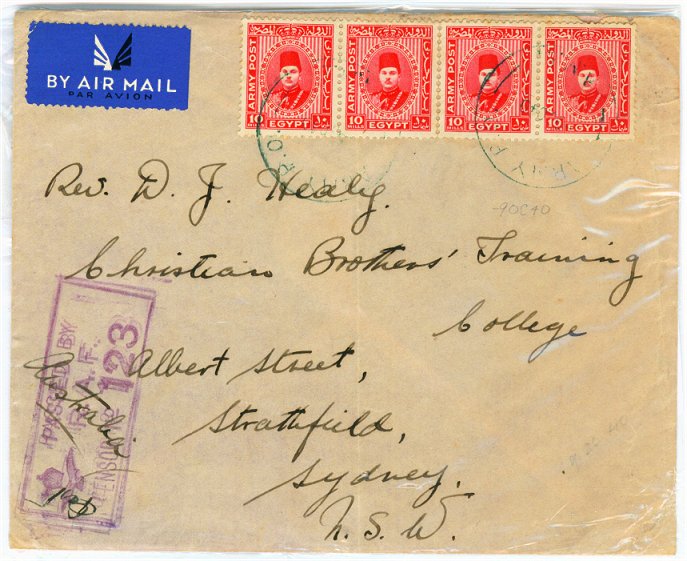 BY AIR MAIL
PAR AVION
ARMY POST
10
MILLS
EGYPT
ARMY POST
10
MILLS
EGYPT
ARMY POST
10
MILLS
EGYPT
ARMY POST
10
MILLS
EGYPT
Rev. D. J. Healy.
Christian Brothers' Training
College
Albert Street,
Strathfield,
Sydney.
N. S. W.
Australia
PASSED BY
R.A.F.
CENSOR No 123